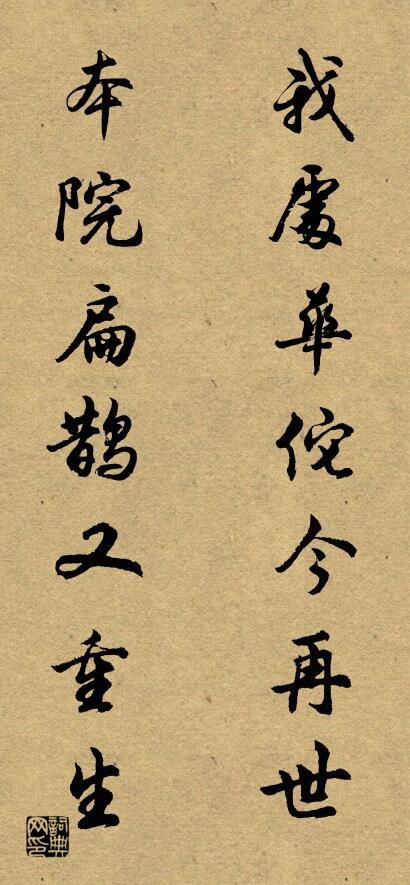 我處華佗今再世
本院扁鵲又重生
詞典网印